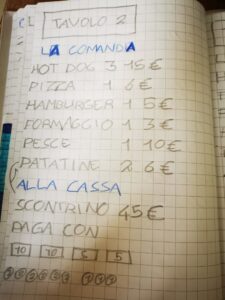 TAVOLO 2
LA COMANDA
HOT DOG 3 15€
PIZZA 1 6€
HAMBURGER 1 5€
FORMAGGIO 1 3€
PESCE 1 10€
PATATINE 2 6€
ALLA CASSA
SCONTRINO 45€
PAGA CON
10 10 5 5